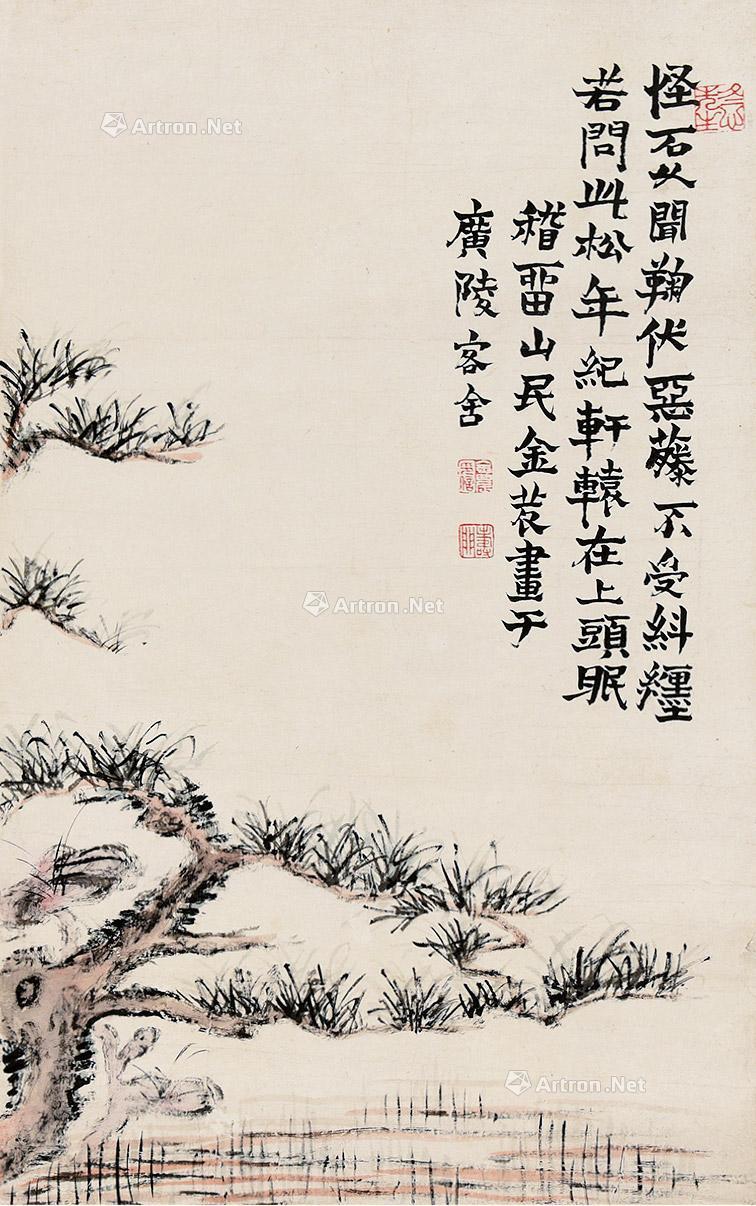 冬心先生
怪石乆聞鞠伏惡藤不受糾纏
若問此松年紀軒轅在上頭眠
稽畱山民金農畫于
廣陵客舍
金農印信
壽門
Artron.Net
Artron.Net
Artron.Net